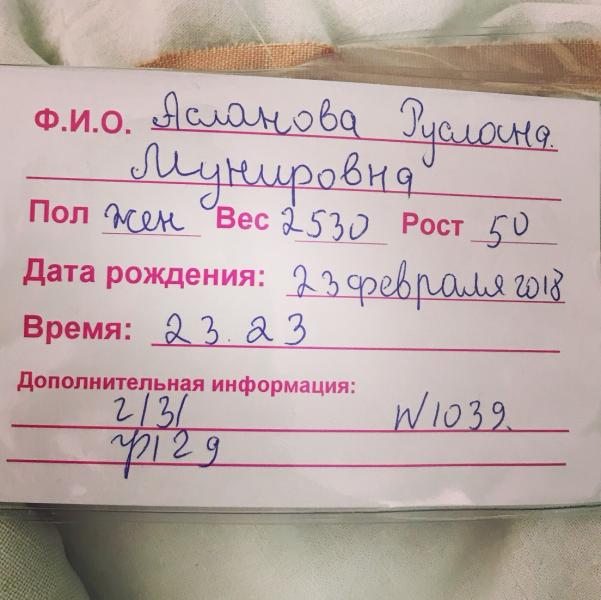 Ф.И.О. Асланова Руслана.
Мунировна
Пол жен Вес 2530 Рост 50
Дата рождения: 23 февраля 2018
Время: 23.23
Дополнительная информация:
г/3/ N 1039.
гр/29